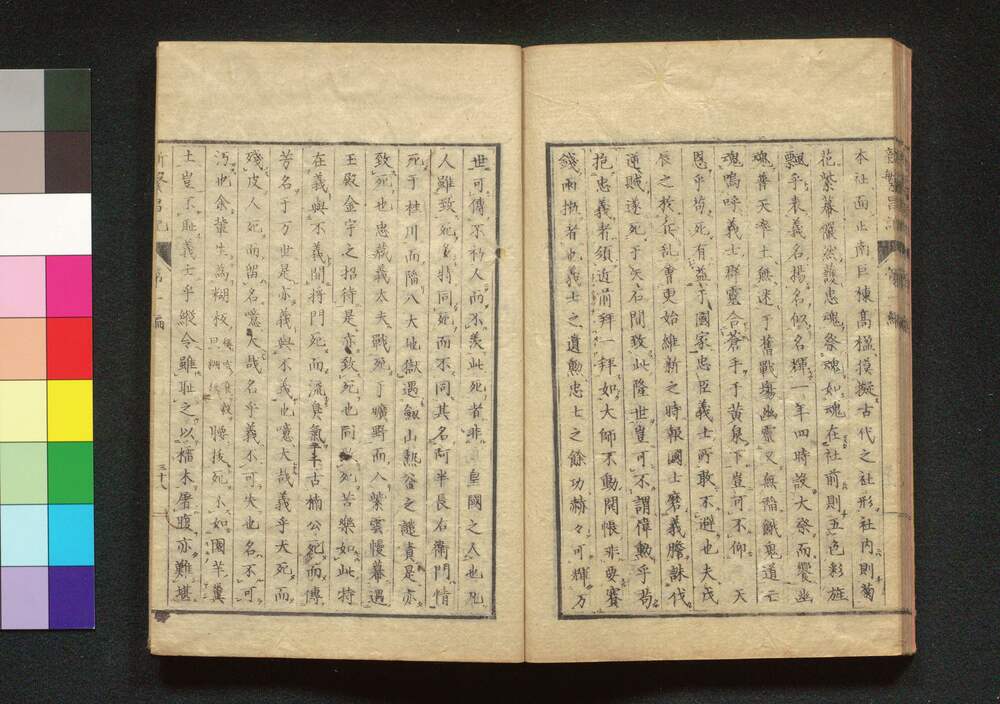 本社面正南巨棟高楹摸擬古代之社形社内則菊
花紫幕儼然護忠魂祭魂如魂在社前則五色彩旌
飄乎表義名揚名似名輝一年四時設大祭而饗幽
魂普天率土無迷于舊戰場幽靈又無陷餓鬼道之
魂嗚呼義士群靈合蒼乎于黄泉下豈可不仰天
恩乎苟死有益于國家忠臣義士所敢不避也夫戊
辰之校作乱曹更始維新之時報國士磨義膽誅伐
逆賊遂死于矢石間致此隆世豈可不謂偉勲乎苟
抱忠義者須近前拜一拜如大師不動開帳非要賽
錢兩揃者也義士之遺勲忠士之餘功赫々可輝万
世可傳不朽人而不羨此死者非皇國之人也凡
人雖致死多特同死而不同其名阿半長右衛門情
死于桂川而陥八大地獄過劔山熱釜之譴責是亦
致死也忠義太夫戰死于曠野而八紫雲幔幕遇
王殿金宇之招待是亦致死也同致死苦樂如此特
在義與不義間將門死而流臭氣千古楠公死而傳
芳名于万世是亦義與不義也噫大哉義乎犬死而
殘皮人死而留名噫大哉名乎義不可失也名不可
汚也余輩生為糊救腰抜死不如國芋糞
土豈不恥義士乎縱令雖恥之以擂木屠腹亦難堪
第一編
三十八